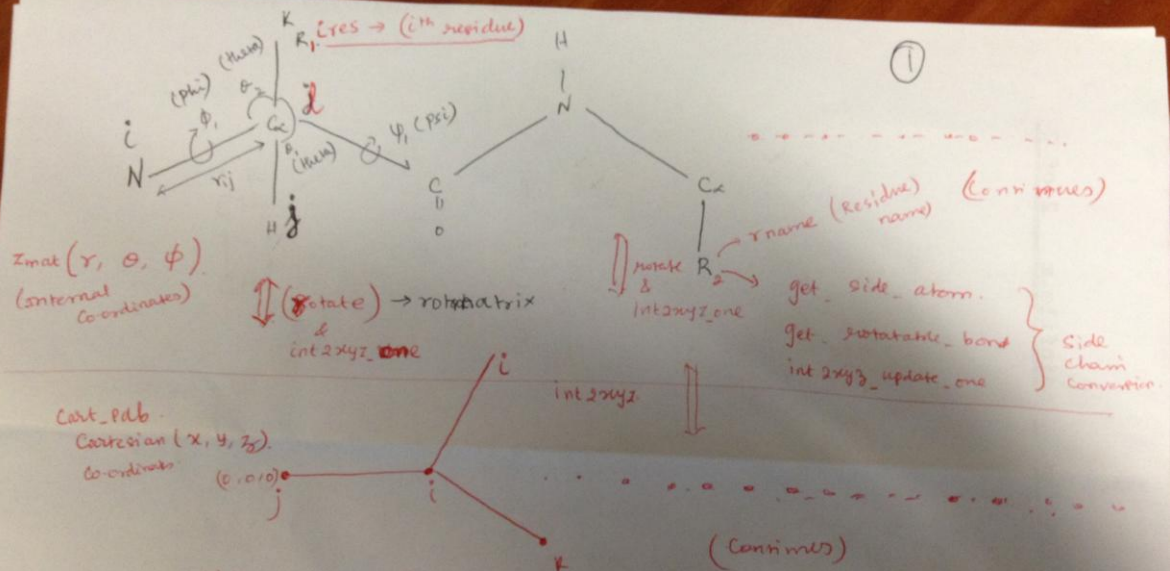 K
R1 ires → (ith residue)
①
H
N
(phi)
ϕ1
(theta)
θ2
Cα
i
N
rij
θ1
(theta)
ψ1 (psi)
H j
C
O
Cα
R2
rname (Residue name)
(Continues)
zmat (r, θ, ϕ)
(internal
co-ordinates)
(rotate) → rotmatrix
&
int2xyz_one
rotate
&
int2xyz_one
get_side_atom
get_rotatable_bond
int2xyz_update_one
side
chain
conversion
int2xyz
Cart_pdb
Cartesian (x, y, z)
co-ordinates
(0,0,0)
j
i
i
K
(Continues)